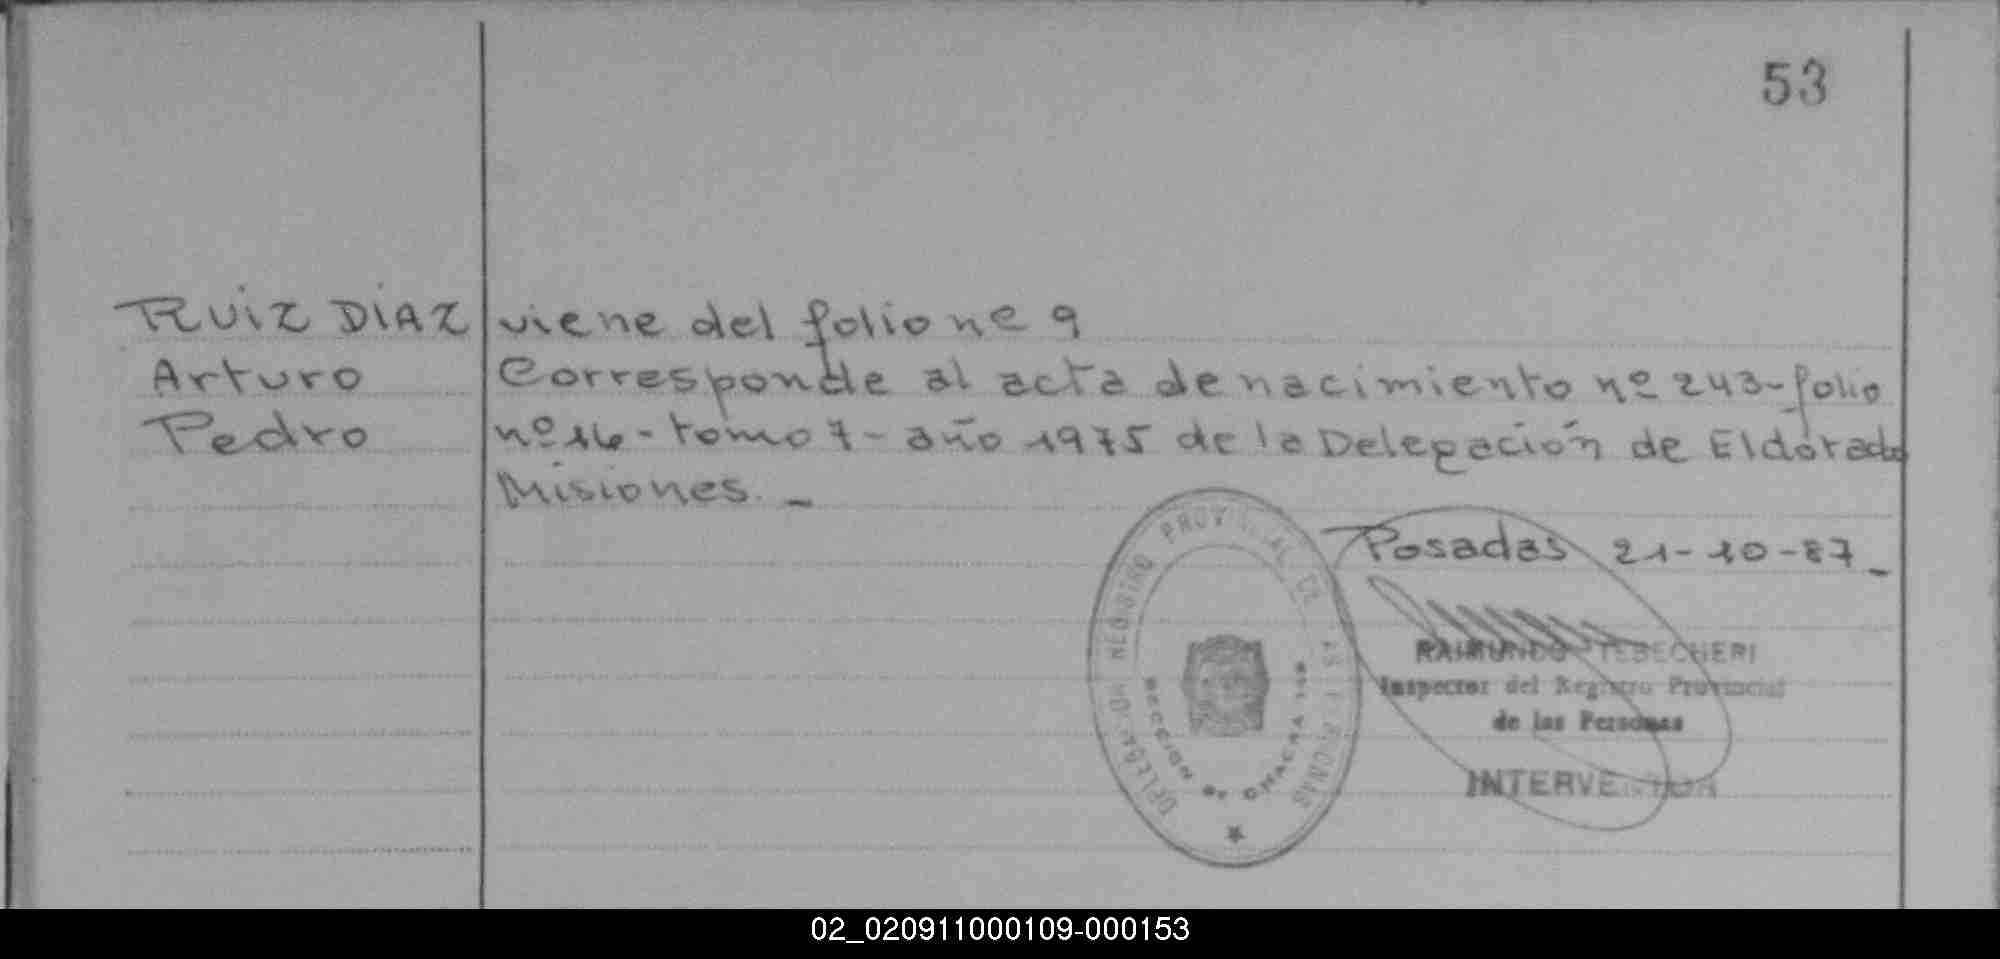 53
RUIZ DIAZ viene del folio nº 9
Arturo Corresponde al acta de nacimiento nº 243-folio
Pedro nº 16 - tomo 7 - año 1975 de la Delegación de Eldorado
Misiones. _
Posadas 21-10-87_
DELEGACION REGISTRO PROVINCIAL DE LAS PERSONAS
SECCION
CHACRA
RAIMUNDO TEBECHERI
Inspector del Registro Provincial
de las Personas
INTERVENTOR
02_020911000109-000153